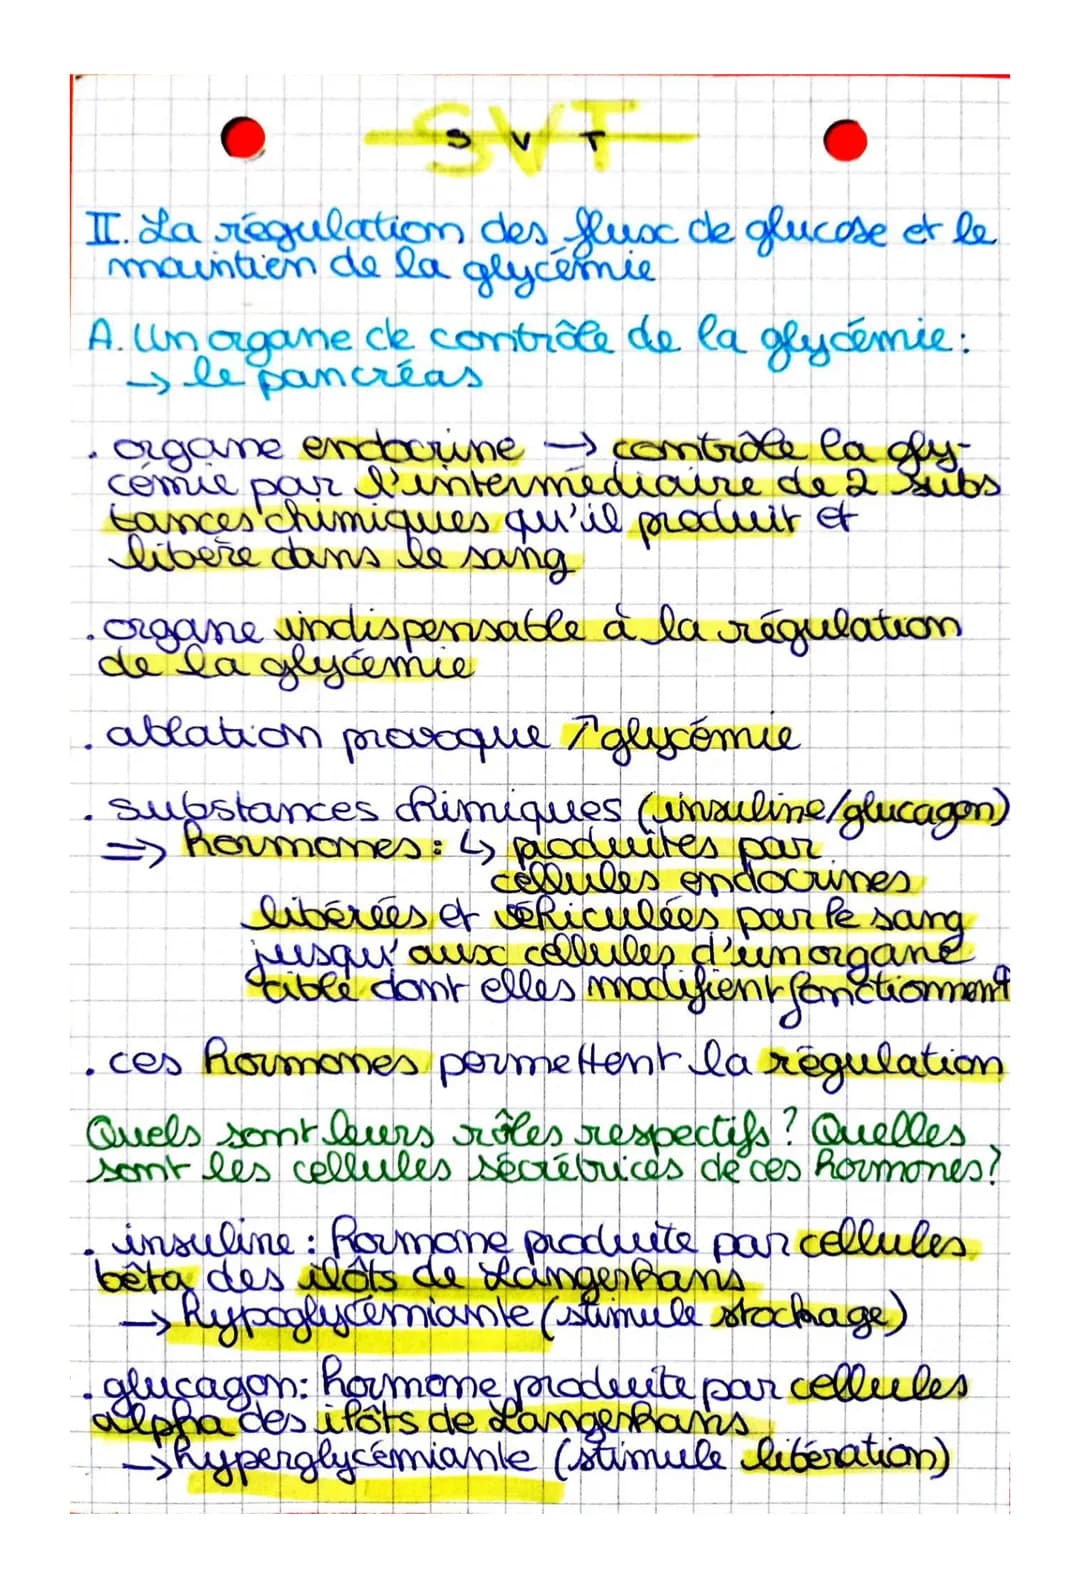 SVT
II. La régulation des flux de glucose et le
maintien de la glycémie
A. Un organe de contrôle de la glycémie :
→ le pancréas
. organe endocrine → contrôle la gly-
cémie par l'intermédiaire de 2 subs
tances chimiques qu'il produit et
libère dans le sang
. organe indispensable à la régulation
de la glycémie
. ablation provoque ↗ glycémie
. substances chimiques (insuline/glucagon)
=> hormones : ↳ produites par
cellules endocrines
libérées et véhiculées par le sang
jusqu'aux cellules d'un organe
cible dont elles modifient fonctionnent
. ces hormones permettent la régulation
Quels sont leurs rôles respectifs ? Quelles
sont les cellules sécrétrices de ces hormones ?
. insuline : hormone produite par cellules
bêta des ilôts de Langerhans
→ hypoglycémiante (stimule stockage)
. glucagon : hormone produite par cellules
alpha des ilôts de Langerhans
→ hyperglycémiante (stimule libération)